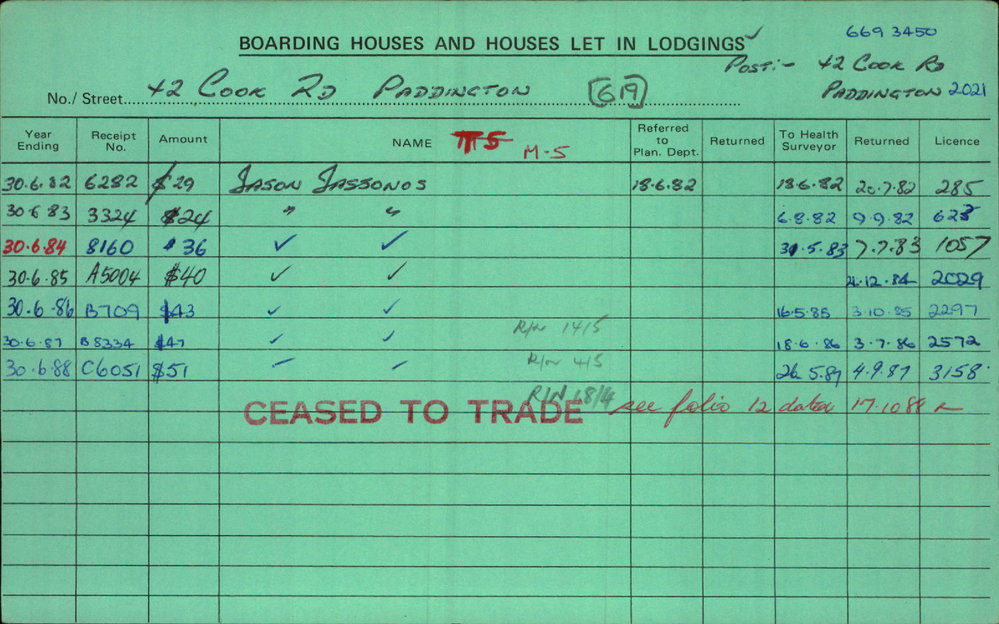 669 3450
BOARDING HOUSES AND HOUSES LET IN LODGINGS ✓
POST:- 42 COOK RD
No./ Street 42 COOK RD PADDINGTON (619) PADDINGTON 2021
Year Ending Receipt No. Amount NAME M-S Referred to Plan. Dept. Returned To Health Surveyor Returned Licence
30.6.82 6282 $29 JASON JASSONOS 18.6.82 18.6.82 20.7.82 285
30 6 83 3324 $24 " " 6.8.82 9.9.82 628
30.6.84 8160 $36 ✓ ✓ 31.5.83 7.7.83 1057
30.6.85 A5004 $40 ✓ ✓ 4.12.84 2029
30.6.86 B709 $43 ✓ ✓ 16.5.85 3.10.85 2297
R/N 14/5
30.6.87 B8334 $47 ✓ ✓ 18.6.86 3.7.86 2572
R/N 4/5
30.6.88 C6051 $51 26.5.87 4.9.87 3158
R/N 18/4
CEASED TO TRADE see folio 12 dated 17.10.88